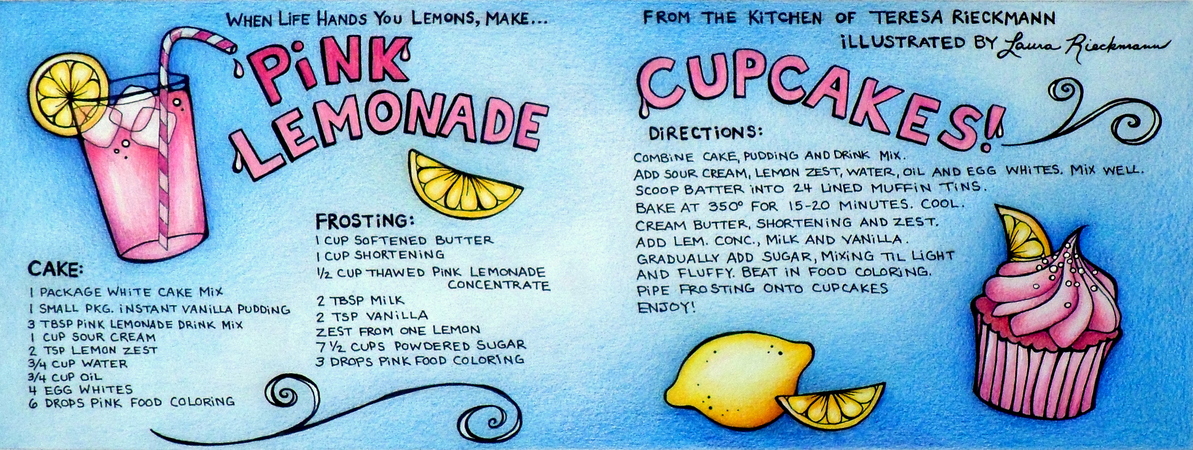 WHEN LIFE HANDS YOU LEMONS, MAKE...
PiNK
LEMONADE
CAKE:
1 PACKAGE WHITE CAKE MiX
1 SMALL PKG. iNSTANT VANiLLA PUDDiNG
3 TBSP PiNK LEMONADE DRiNK MiX
1 CUP SOUR CREAM
2 TSP LEMON ZEST
3/4 CUP WATER
3/4 CUP OiL
4 EGG WHiTES
6 DROPS PiNK FOOD COLORiNG
FROSTiNG:
1 CUP SOFTENED BUTTER
1 CUP SHORTENiNG
1/2 CUP THAWED PiNK LEMONADE
CONCENTRATE
2 TBSP MiLK
2 TSP VANiLLA
ZEST FROM ONE LEMON
7 1/2 CUPS POWDERED SUGAR
3 DROPS PiNK FOOD COLORiNG
FROM THE KiTCHEN OF TERESA RiECKMANN
iLLUSTRATED BY Laura Rieckmann
CUPCAKES!
DiRECTiONS:
COMBiNE CAKE, PUDDiNG AND DRiNK MiX.
ADD SOUR CREAM, LEMON ZEST, WATER, OiL AND EGG WHiTES. MiX WELL.
SCOOP BATTER iNTO 24 LiNED MUFFiN TiNS.
BAKE AT 350° FOR 15-20 MiNUTES. COOL.
CREAM BUTTER, SHORTENiNG AND ZEST.
ADD LEM. CONC., MiLK AND VANiLLA.
GRADUALLY ADD SUGAR, MiXiNG TiL LiGHT
AND FLUFFY. BEAT iN FOOD COLORiNG.
PiPE FROSTiNG ONTO CUPCAKES
ENJOY!